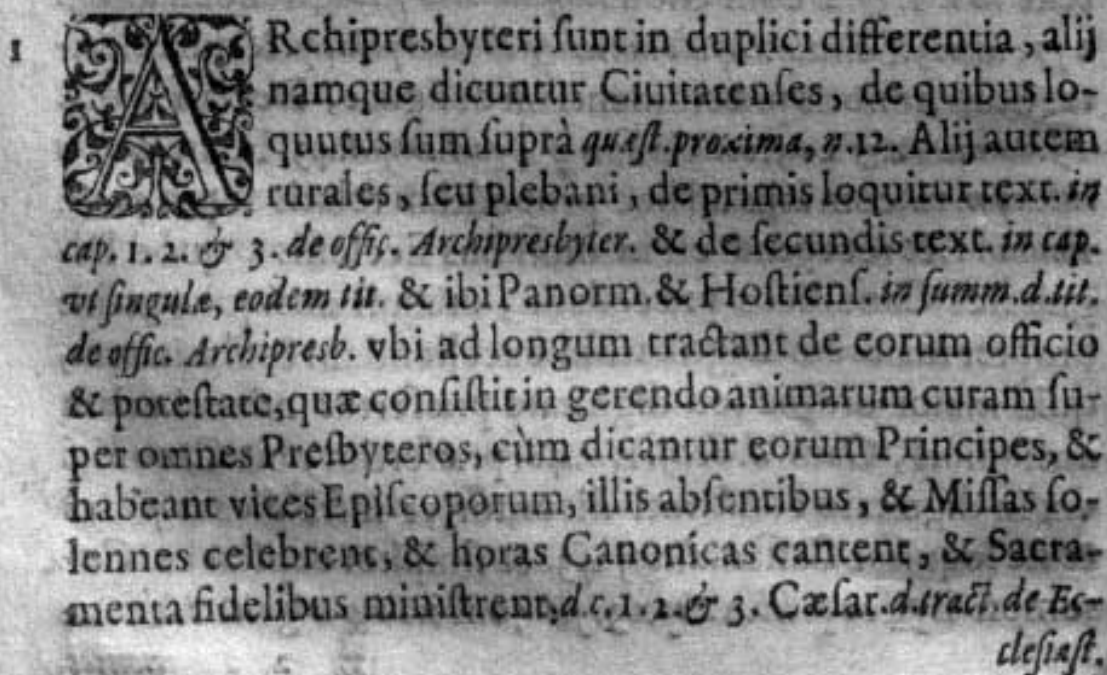 1 ARchipresbyteri ſunt in duplici differentia, alij
namque dicuntur Ciuitatenſes, de quibus lo-
quutus ſum ſuprà quæſt. proxima, n. 12. Alij autem
rurales, ſeu plebani, de primis loquitur text. in
cap. 1. 2. & 3. de offic. Archipresbyter. & de ſecundis text. in cap.
vt ſingulæ, eodem tit. & ibi Panorm. & Hoſtienſ. in ſumm. d. tit.
de offic. Archipresb. vbi ad longum tractant de eorum officio
& poteſtate, quæ conſiſtit in gerendo animarum curam ſu-
per omnes Preſbyteros, cùm dicantur eorum Principes, &
habeant vices Epiſcoporum, illis abſentibus, & Miſſas ſo-
lennes celebrent, & horas Canonicas cantent, & Sacra-
menta fidelibus miniſtrent, d. c. 1. 2. & 3. Cæſar. d. tract. de Ec-
cleſiaſt.